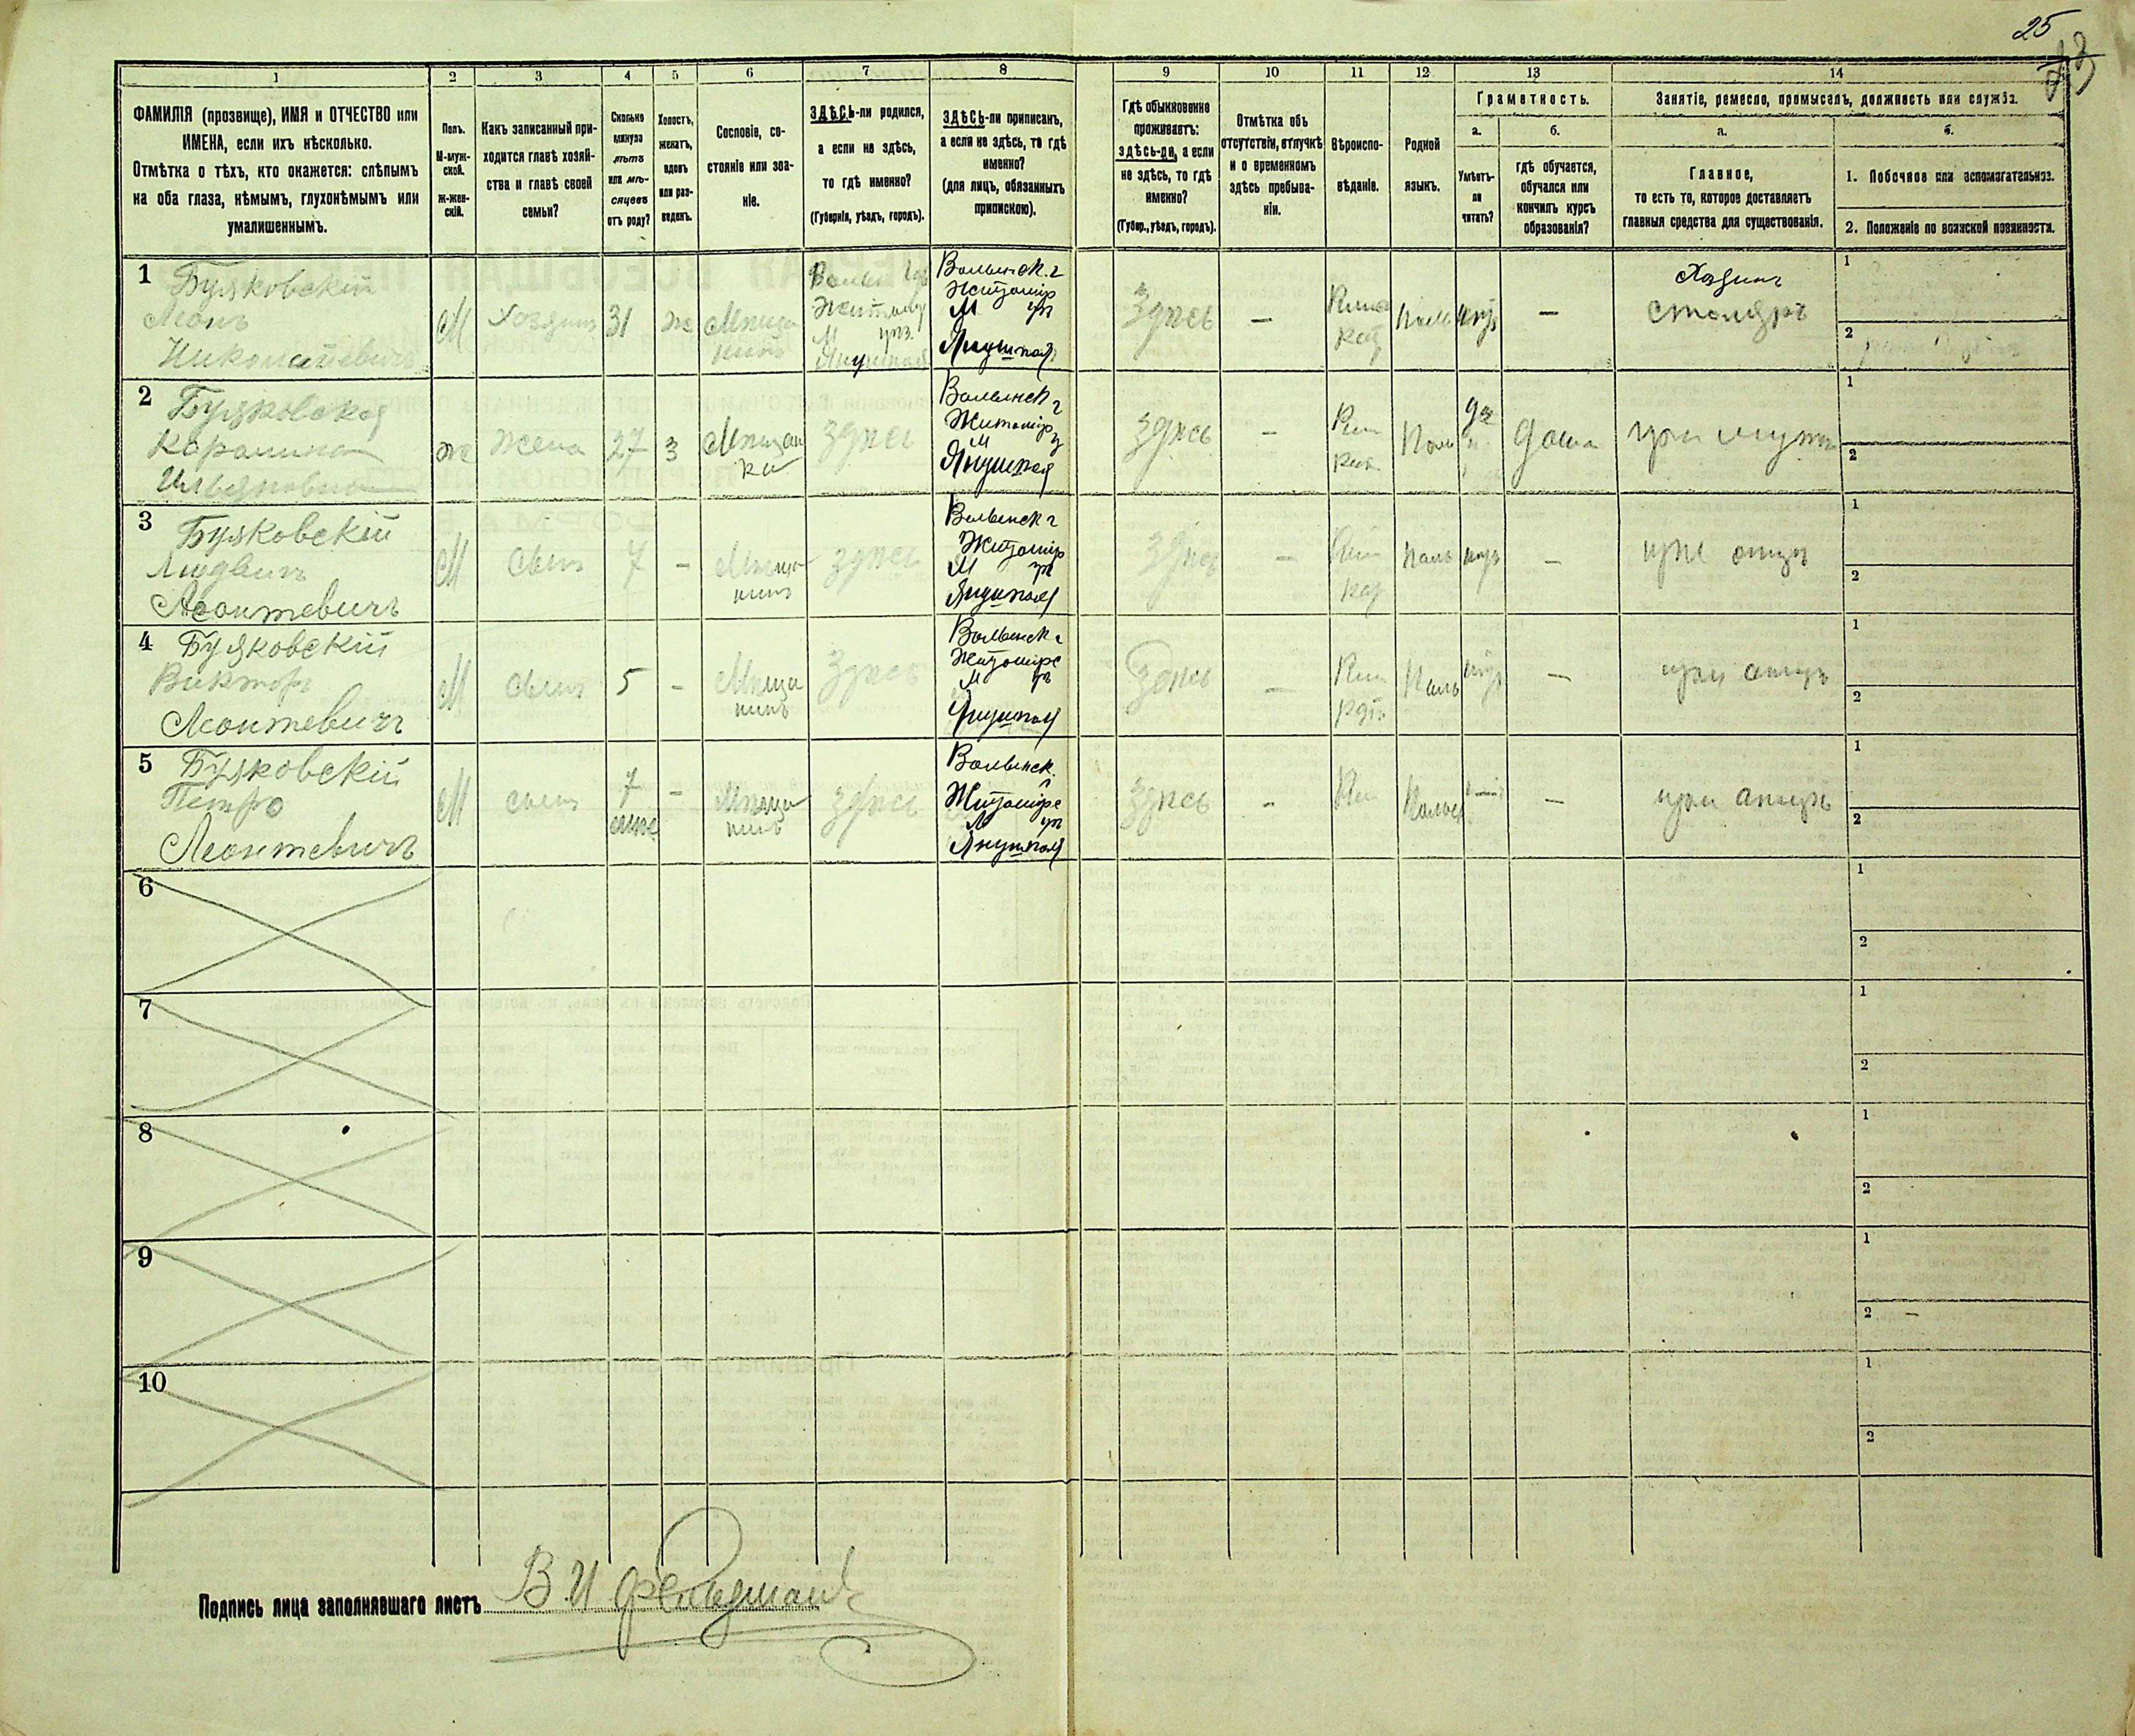 25
1 2 3 4 5 6 7 8 9 10 11 12 13 14
ФАМИЛІЯ (прозвище), ИМЯ и ОТЧЕСТВО или
ИМЕНА, если ихъ нѣсколько.
Отмѣтка о тѣхъ, кто окажется: слѣпымъ
на оба глаза, нѣмымъ, глухонѣмымъ или
умалишеннымъ.
Полъ.
М-муж-
ской.
ж-жен-
скій.
Какъ записанный при-
ходится главѣ хозяй-
ства и главѣ своей
семьи?
Сколько
минуло
лѣтъ
или мѣ-
сяцевъ
отъ роду?
Холостъ,
женатъ,
вдовъ
или раз-
веденъ.
Сословіе, со-
стояніе или зва-
ніе.
ЗДѢСЬ-ли родился,
а если не здѣсь,
то гдѣ именно?
(Губернія, уѣздъ, городъ).
ЗДѢСЬ-ли приписанъ,
а если не здѣсь, то гдѣ
именно?
(для лицъ, обязанныхъ
припискою).
Гдѣ обыкновенно
проживаетъ:
здѣсь-ли, а если
не здѣсь, то гдѣ
именно?
(Губер., уѣздъ, городъ).
Отмѣтка объ
отсутствіи, отлучкѣ
и о временномъ
здѣсь пребыва-
ніи.
Вѣроиспо-
вѣданіе.
Родной
языкъ.
Грамотность.
а.
Умѣетъ-
ли
читать?
б.
гдѣ обучается,
обучался или
кончилъ курсъ
образованія?
Занятіе, ремесло, промыселъ, должность или служба.
а.
Главное,
то есть то, которое доставляетъ
главныя средства для существованія.
б.
1. Побочное или вспомогательное.
2. Положеніе по воинской повинности.
1
Буяковскій
Леонъ
Николаевичъ
М
Хозяинъ
31
ж
Мѣща
нинъ
Житомир
М
Янушполь
Волынск. г
Житомир
М у
Янушполь
Здѣсь
—
Римо
кат
Поль
—
Хозяинъ
столяръ
1
2
2
Буяковская
Каролина
ж
Жена
27
з
Мѣщан
ка
здѣсь
Волынск г
Житомир
М у
Янушполь
Здѣсь
—
Рим
кат
Поль
да
дома
при мужѣ
1
2
3
Буяковскій
Людвигъ
Леонтевичъ
М
сынъ
7
-
Мѣща
нинъ
здѣсь
Волынск г
Житомир
М у
Янушполь
Здѣсь
—
Рим
кат
Поль
—
при отцѣ
1
2
4
Буяковскій
Викторъ
Леонтевичъ
М
сынъ
5
-
Мѣща
нинъ
Здѣсь
Волынск г
Житомирс
М у
Янушполь
Здѣсь
—
Рим
кат
Поль
—
при отцѣ
1
2
5
Буяковскій
Петро
Леонтевичъ
М
сынъ
7
-
Мѣща
нинъ
здѣсь
Волынск. г
Житомирс
М у
Янушполь
Здѣсь
-
Рим
Польс
—
при отцѣ
1
2
6
1
2
7
1
2
8
1
2
9
1
2 —
10
1
2
Подпись лица заполнявшаго листъ В. И Фельдманъ